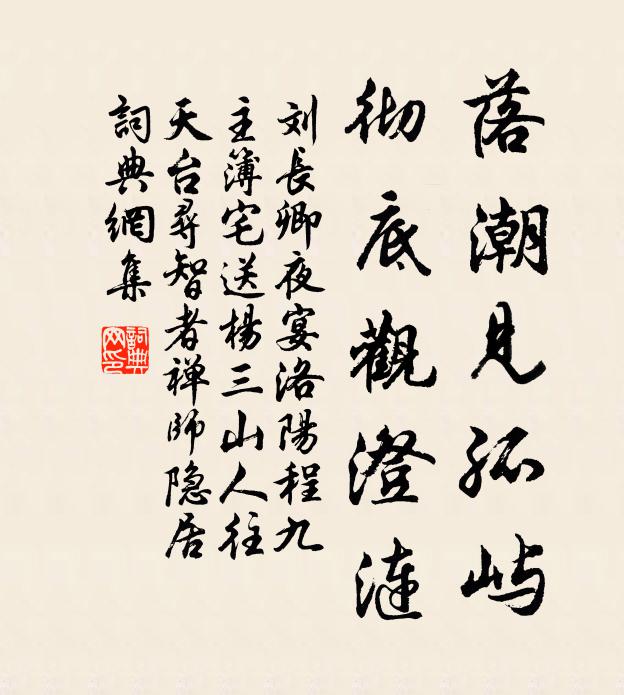 落潮見孤屿
彻底觀澄漣
刘長卿夜宴洛陽程九
主簿宅送楊三山人往
天台尋智者禅師隐居
詞典網集
詞典网印